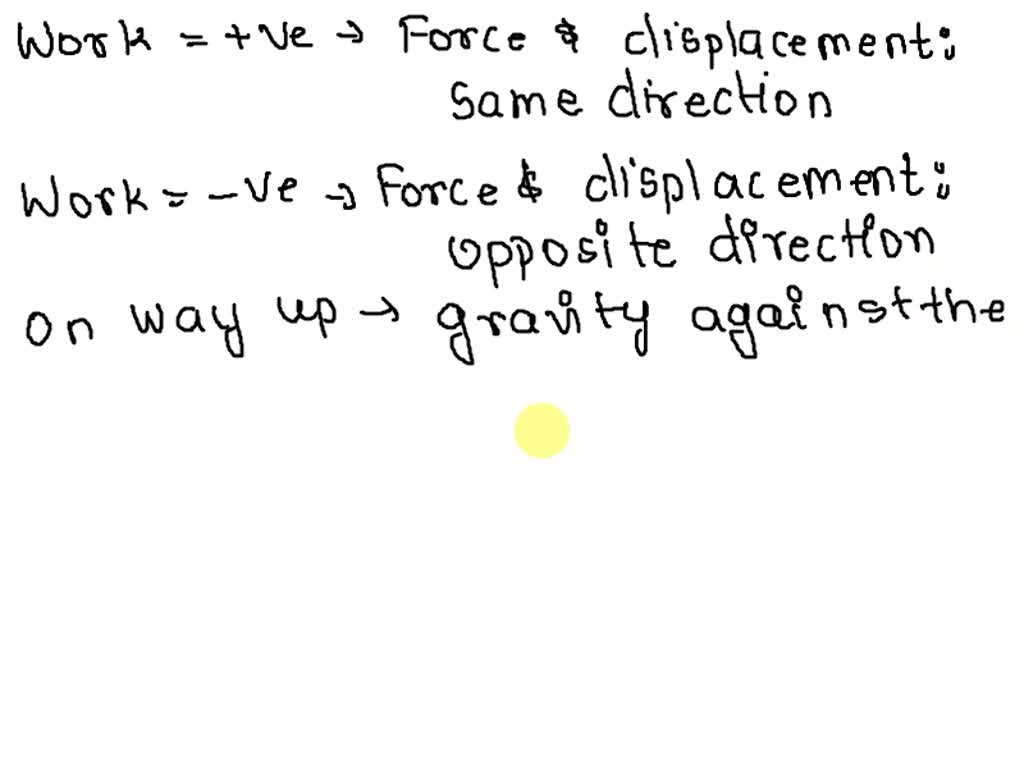 Work = +ve → Force & displacement:
same direction
Work = -ve → Force & displacement:
opposite direction
on way up → gravity against the